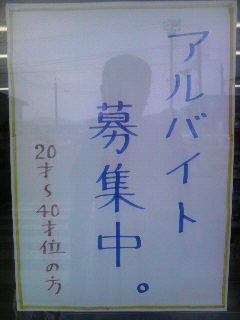 アルバイト
募集中。
20才〜40才位の方